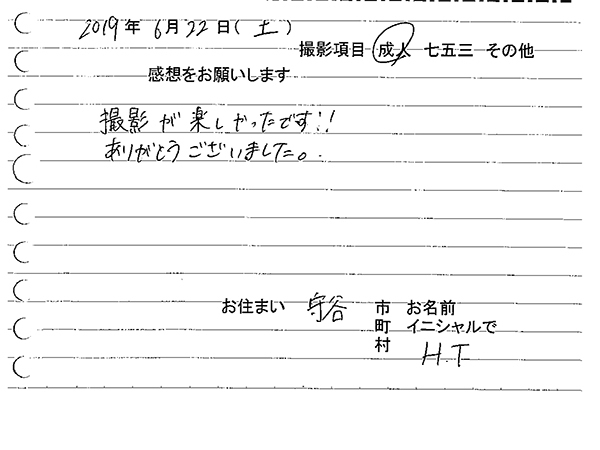 2019年6月22日(土)
撮影項目 成人 七五三 その他
感想をお願いします
撮影が楽しかったです!!
ありがとうございました。
お住まい 守谷 市 お名前
町 イニシャルで
村 H.T